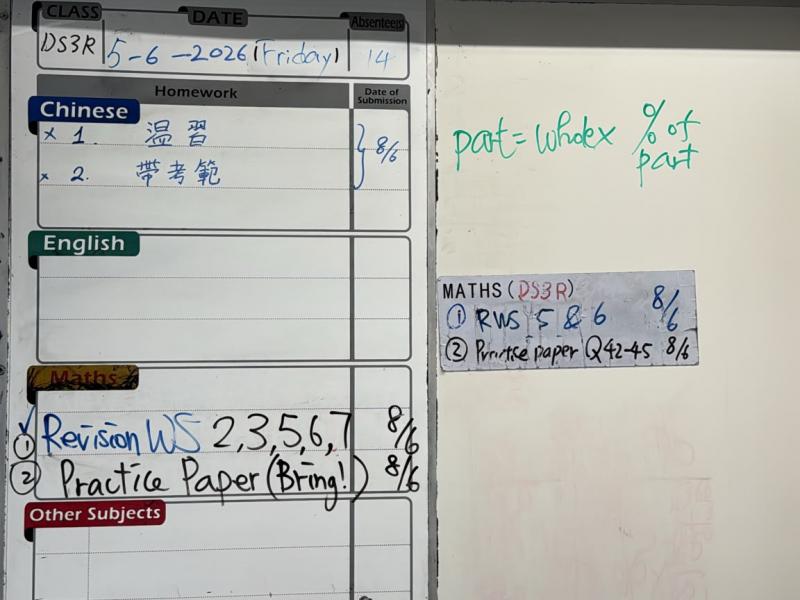 CLASS DATE Absentees
DS3R 5-6-2026 (Friday) 14
Homework Date of Submission
Chinese
× 1. 温習 8/6
× 2. 帶考範
English
Maths
✓
① Revision WS 2,3,5,6,7 8/6
② Practice Paper (Bring!) 8/6
Other Subjects
part = whole × % of
part
MATHS (DS3R)
① RWS 5 & 6 8/6
② Practice paper Q42-45 8/6